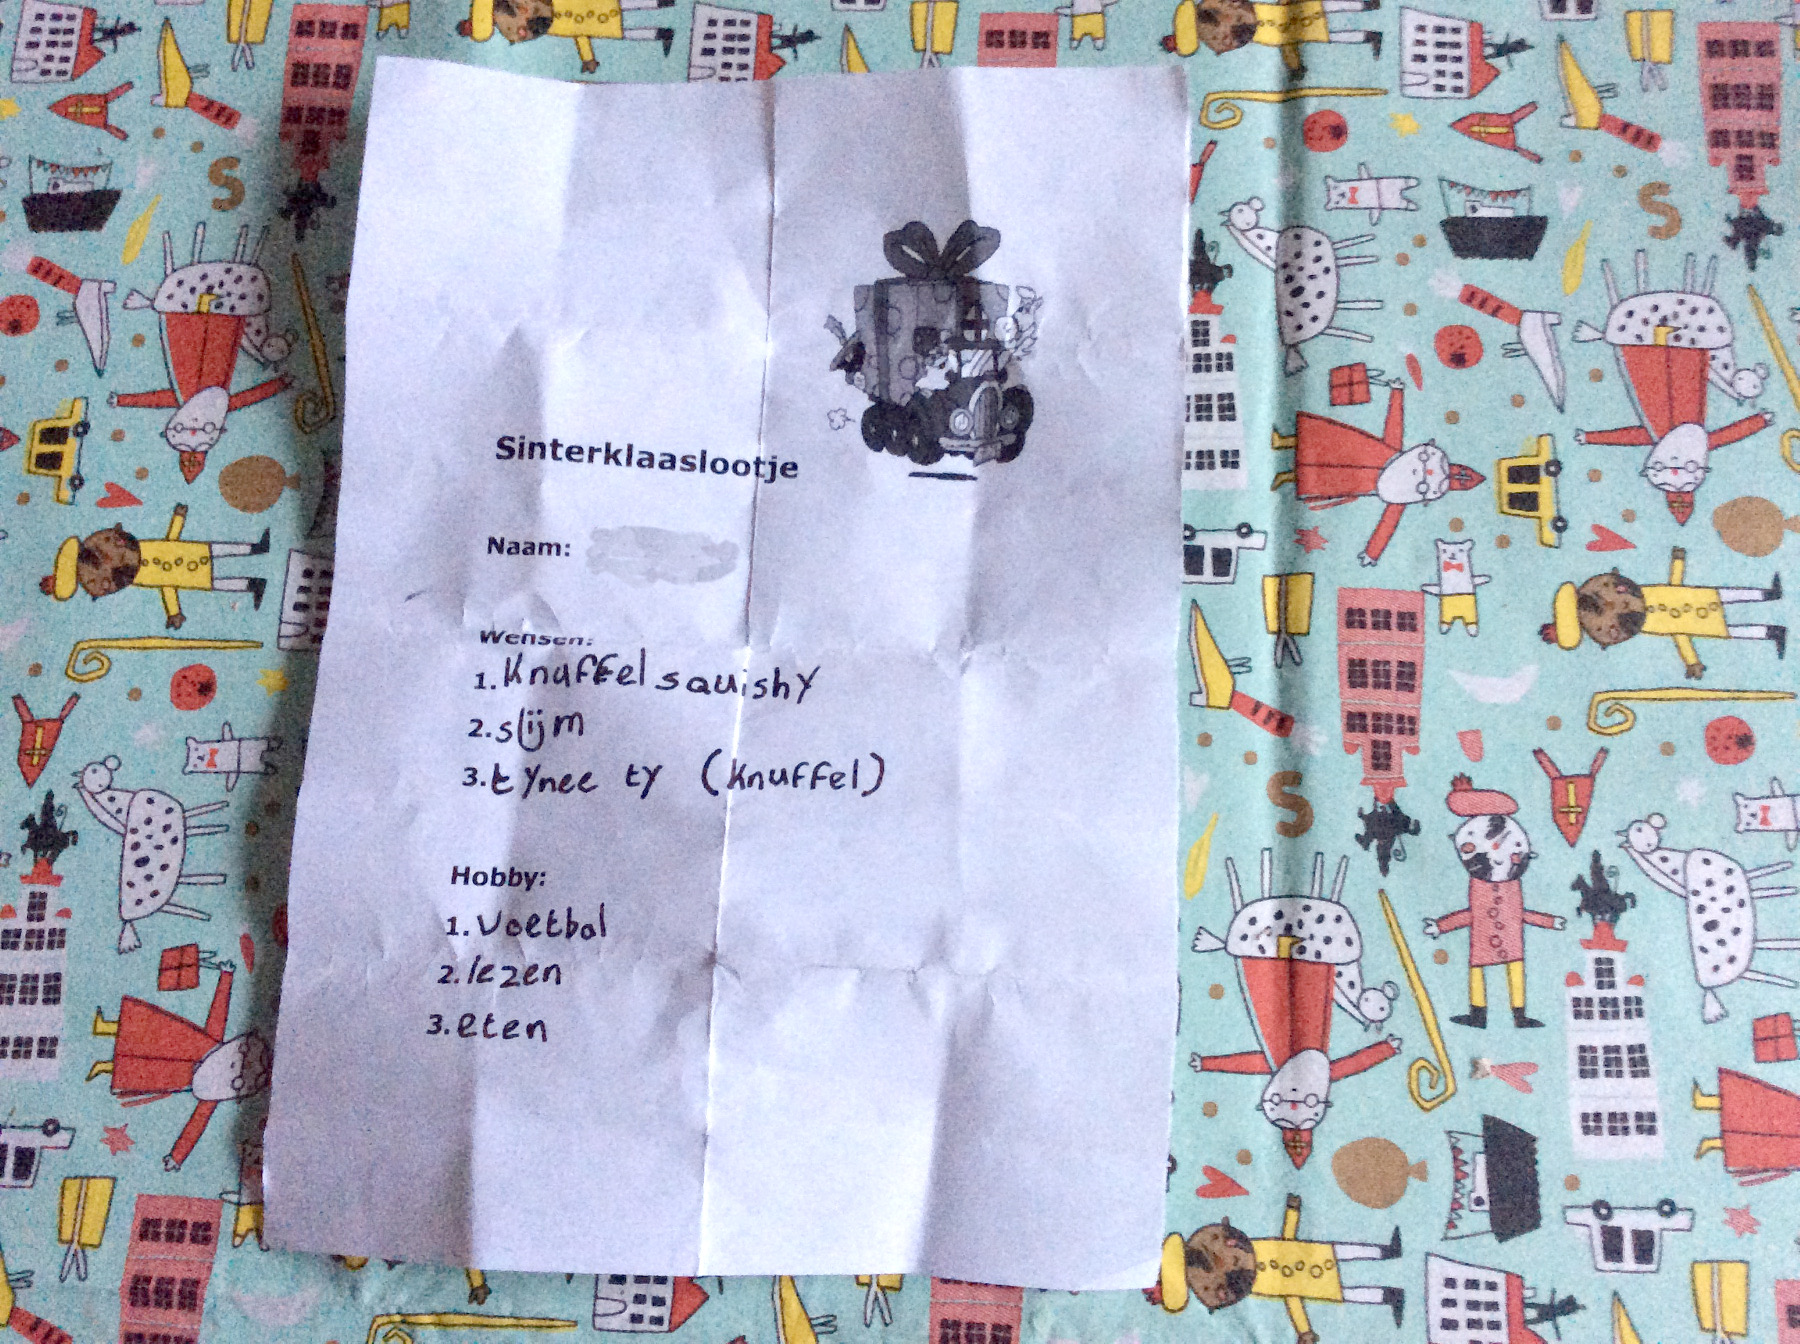 Sinterklaaslootje
Naam:
Wensen:
1. Knuffel squishy
2. slijm
3. tynee ty (knuffel)
Hobby:
1. Voetbal
2. lezen
3. eten